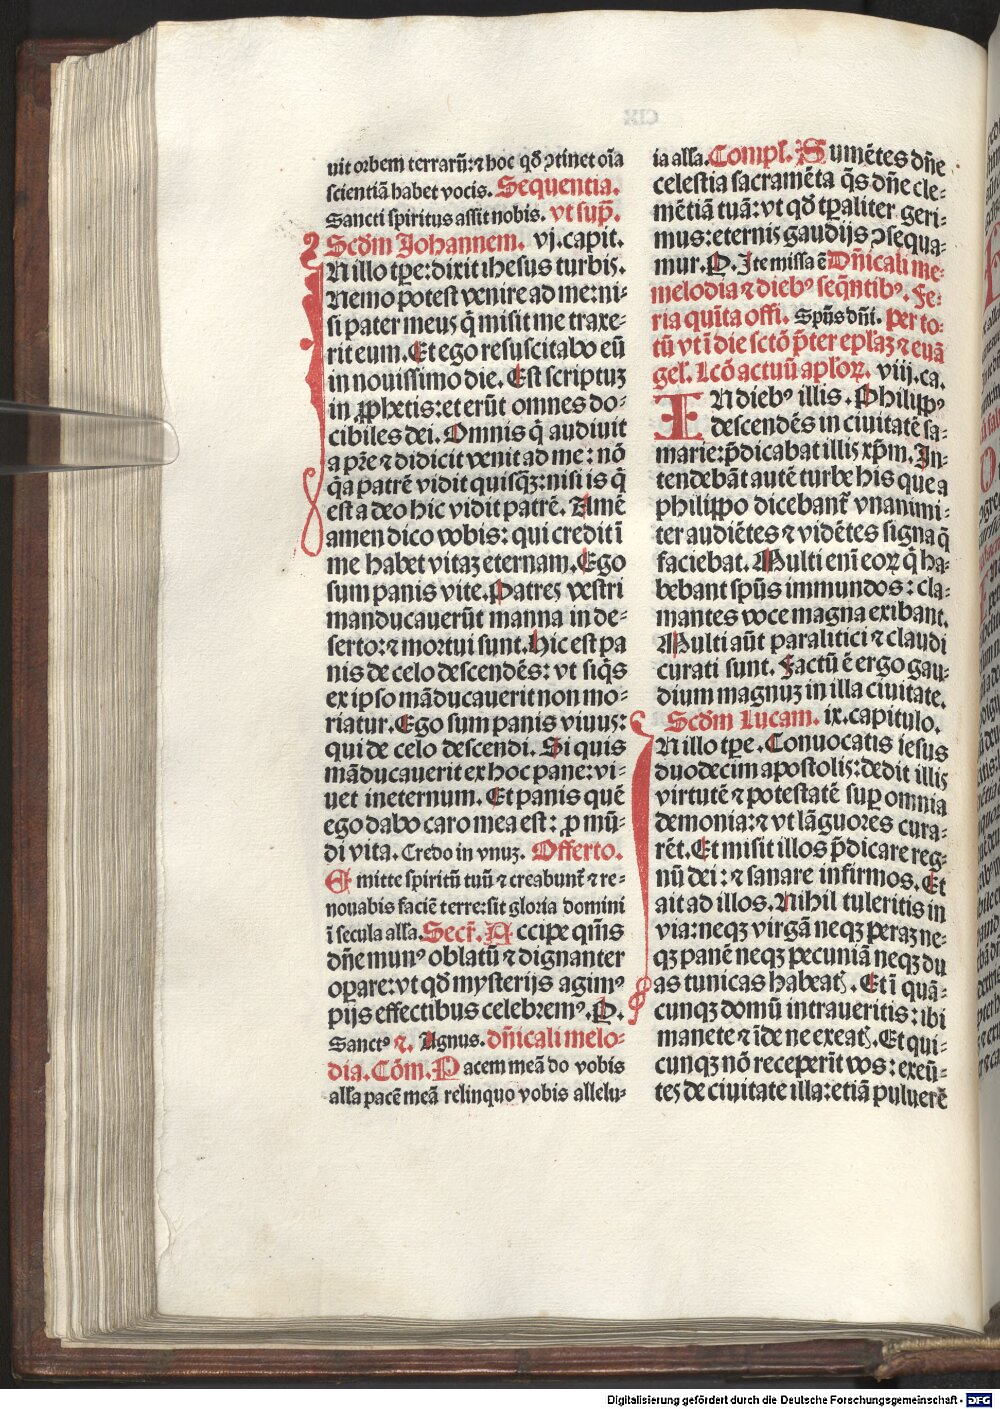 uit orbem terrarũ:⁊ hoc qð ↄtinet oĩa
scientiã habet vocis. Sequentia.
Sancti spiritus assit nobis. vt sup̃.
Scd̃m Johannem. vj.capit.
IN illo tp̃e:dixit ihesus turbis.
Nemo potest venire ad me:ni⸗
si pater meus q̃ misit me traxe⸗
rit eum. Et ego resuscitabo eũ
in nouissimo die. Est scriptuꝫ
in ꝓphetis:et erũt omnes do⸗
cibiles dei. Omnis q̃ audiuit
a pr̃e ⁊ didicit venit ad me: nõ
q̃a patrẽ vidit quisqꝫ:nisi is q̃
est a deo hic vidit patrẽ. Amẽ
amen dico vobis: qui credit ĩ
me habet vitaꝫ eternam. Ego
sum panis vite. Patres vestri
manducauerũt manna in de⸗
serto:⁊ mortui sunt. Hic est pa
nis de celo descendẽs: vt siq̃s
ex ipso mãducauerit non mo⸗
riatur. Ego sum panis viuus:
qui de celo descendi. Si quis
mãducauerit ex hoc pane: vi⸗
uet ineternum. Et panis quẽ
ego dabo caro mea est: ꝓ mũ⸗
di vita. Credo in vnuꝫ. Offerto.
Emitte spiritũ tuũ ⁊ creabunt̃ ⁊ re⸗
nouabis faciẽ terre:sit gloria domini
ĩ secula all'a. Secr̃. Accipe q̃m̃s
dñe munꝰ oblatũ ⁊ dignanter
oꝑare:vt qð mysterijs agimꝰ
pijs effectibus celebremꝰ. P.
Sanctꝰ ⁊. Agnus. dñicali melo⸗
dia. Cõm. Pacem meã do vobis
all'a pacẽ meã relinquo vobis allelu⸗
ia all'a. Compl. Sumẽtes dñe
celestia sacramẽta q̃s dñe cle⸗
mẽtiã tuã: vt qð tꝑaliter geri⸗
mus: eternis gaudijs ↄsequa⸗
mur. P. Ite missa ẽ Dñicali me⸗
melodia ⁊ diebꝰ seq̃ntibꝰ. Fe⸗
ria quĩta offi. Spũs dñi. Per to⸗
tũ vt ĩ die sctõ p̃ter epl'aꝫ ⁊ euã
gel'. Lcõ actuũ apl'oꝝ. viij.ca.
IN diebꝰ illis. Philippꝰ
descendẽs in ciuitatẽ sa⸗
marie: p̃dicabat illis xp̃m. In⸗
tendebãt autẽ turbe his que a
philippo dicebant̃ vnanimi⸗
ter audiẽtes ⁊ vidẽtes signa q̃
faciebat. Multi eni eoꝝ q̃ ha⸗
bebant spũs immundos: cla⸗
mantes voce magna exibant.
Multi aũt paralitici ⁊ claudi
curati sunt. Factũ ẽ ergo gau⸗
dium magnuꝫ in illa ciuitate.
Scd̃m Lucam. ix.capitulo.
IN illo tp̃e. Conuocatis iesus
duodecim apostolis: dedit illis
virtutẽ ⁊ potestatẽ suꝑ omnia
demonia: ⁊ vt lãguores cura⸗
rẽt. Et misit illos p̃dicare reg⸗
nũ dei: ⁊ sanare infirmos. Et
ait ad illos. Nihil tuleritis in
via: neqꝫ virgã neqꝫ peraꝫ ne⸗
qꝫ panẽ neqꝫ pecuniã neqꝫ du
as tunicas habeat⁊. Et ĩ quã⸗
cunqꝫ domũ intraueritis: ibi
manete ⁊ ĩde ne exeat⁊. Et qui⸗
cunqꝫ nõ receperĩt vos: exeũ⸗
tes de ciuitate illa: etiã puluerẽ
Digitalisierung gefördert durch die Deutsche Forschungsgemeinschaft - DFG